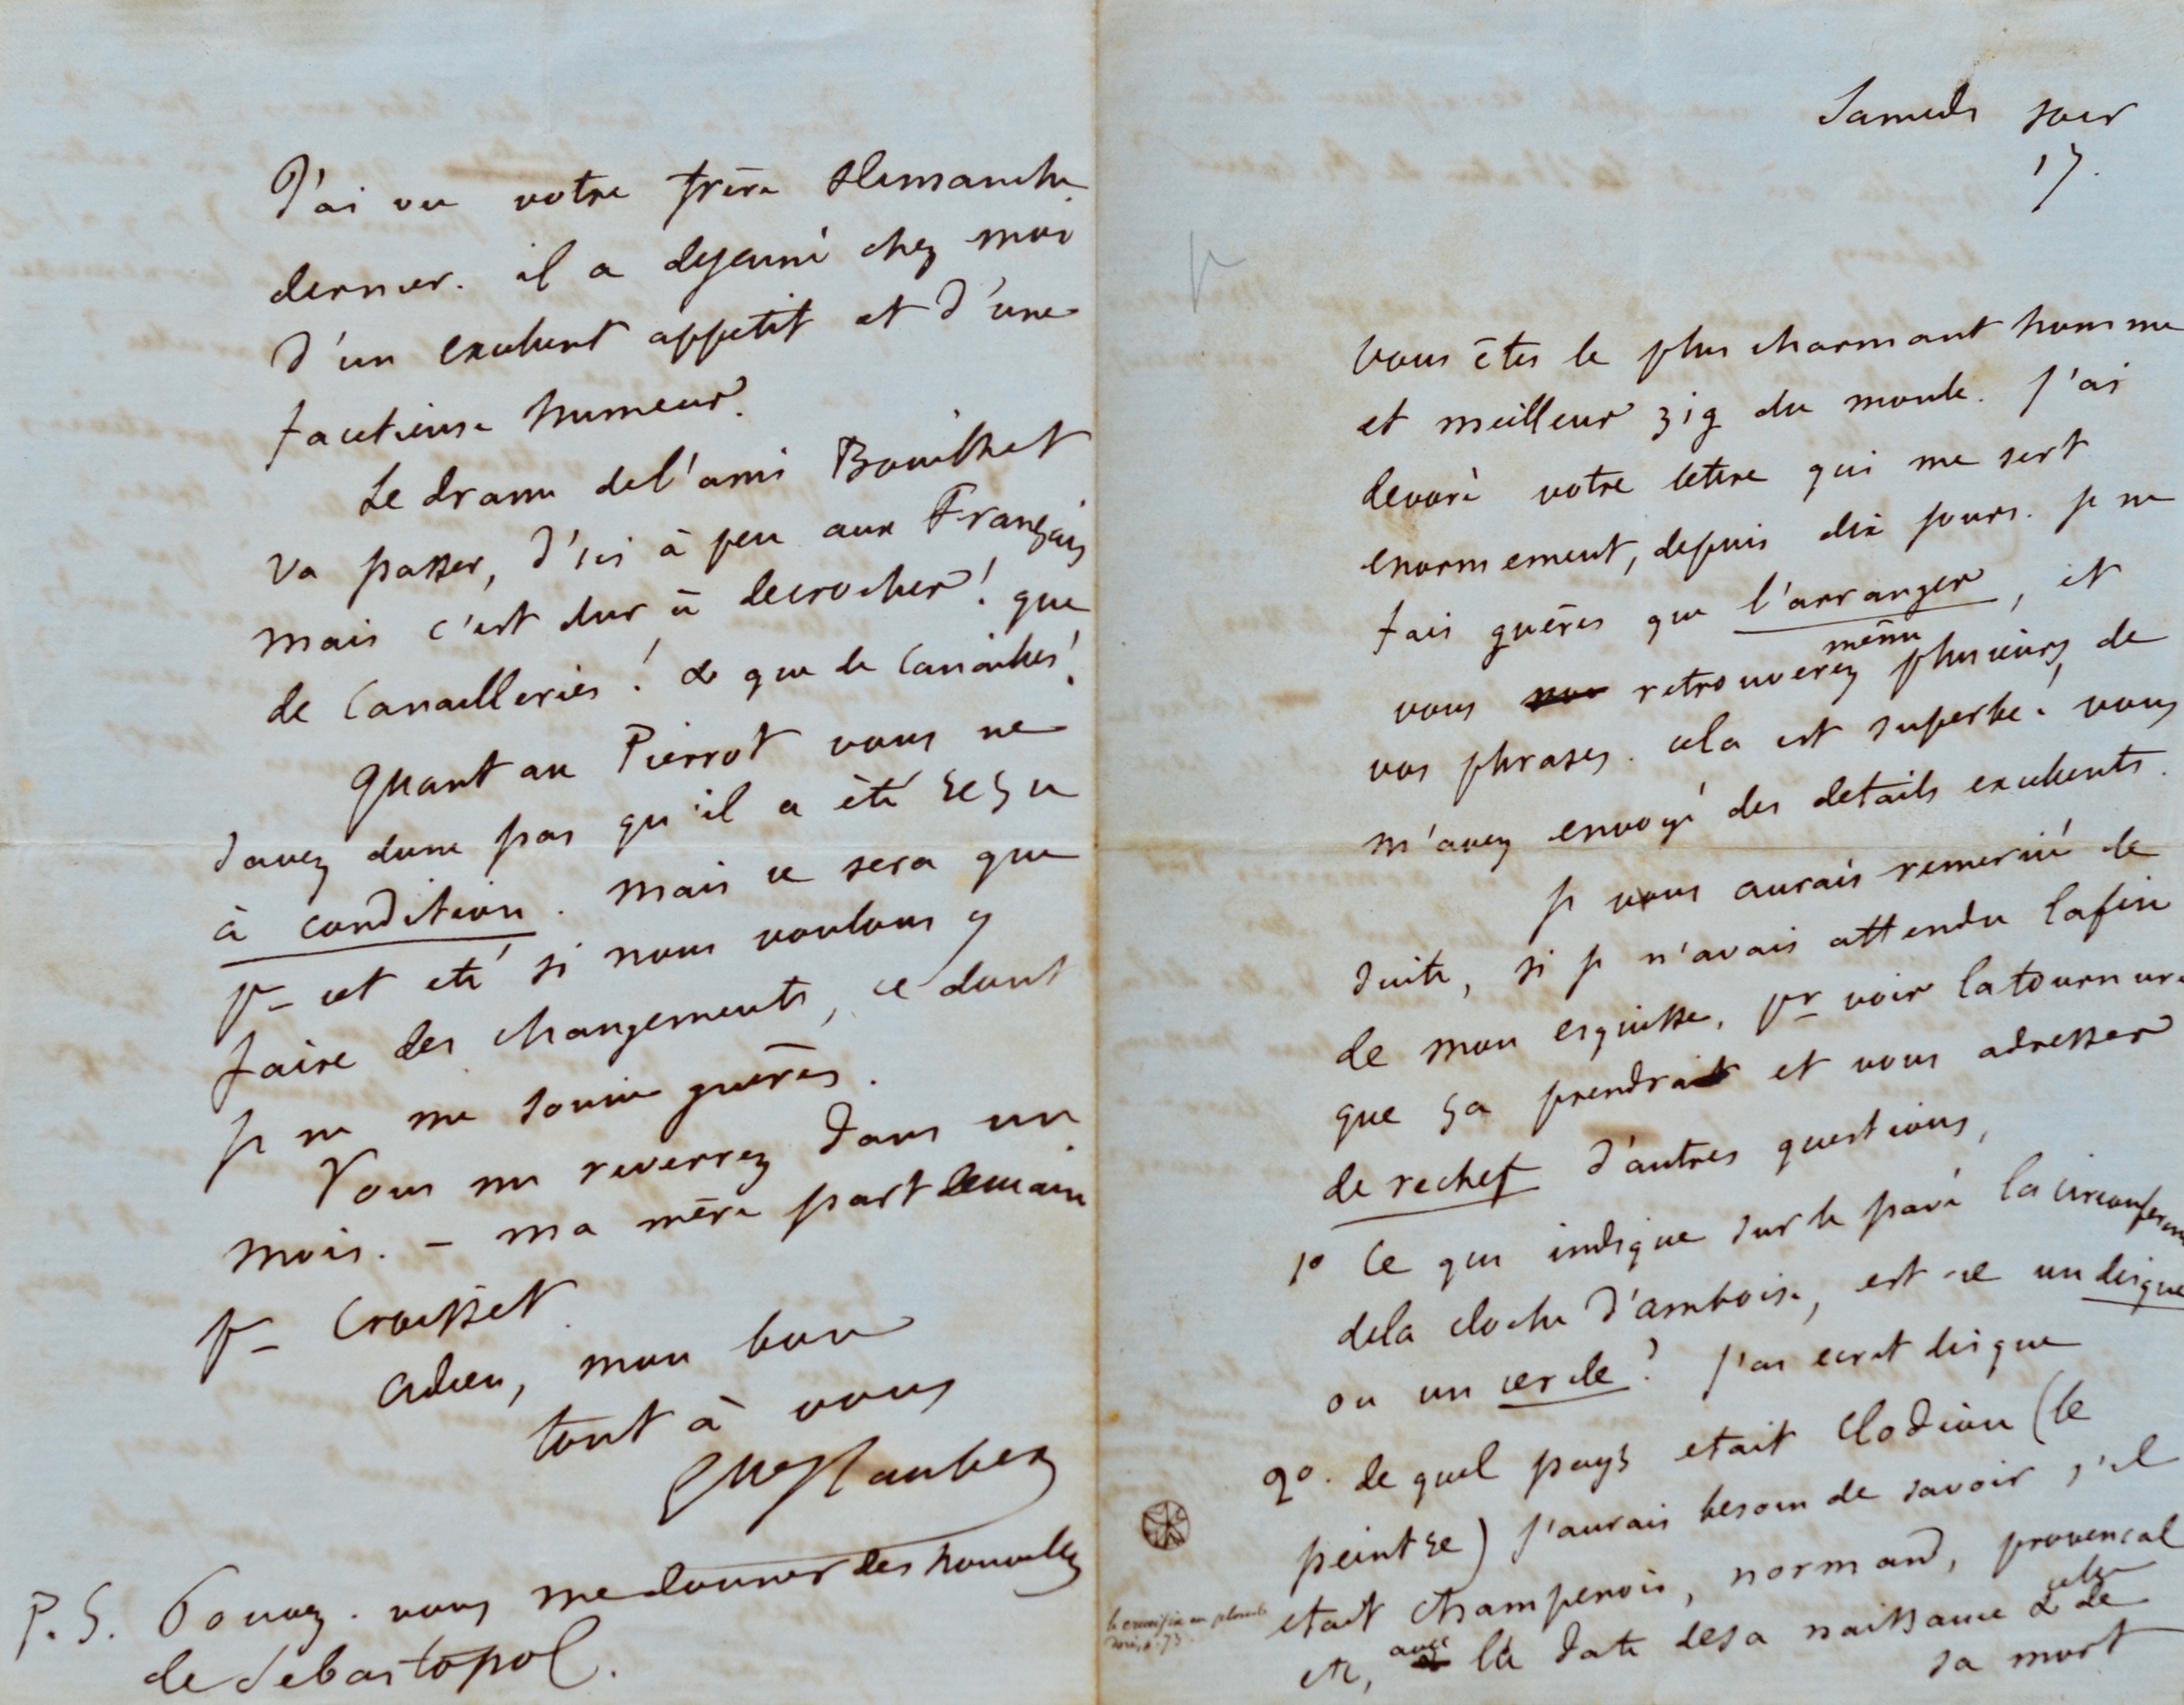 J'ai vu votre frère dimanche
dernier. il a dejeuné chez moi
d'un excellent appetit et d'une
facetieuse humeur.
Le drame de l'ami Bouilhet
va passer, d'ici à peu aux Français
mais c'est dur à decrocher! que
de Canailleries! & que de Canailles!
Quant au Pierrot vous ne
savez donc pas qu'il a été reçu
à condition. mais ce sera que
pr cet eté si nous voulons y
faire des changements, ce dont
je ne me soucie guères.
Vous me reverrez dans un
mois. – ma mère part demain
pr Croisset
adieu, mon bon
tout à vous
Gve Flaubert
P.S. Pouvez-vous me donner des nouvelles
de Sebastopol.
Samedi soir
17.
Vous êtes le plus charmant homme
et meilleur zig du monde. J'ai
devoré votre lettre qui me sert
enormement, depuis dix jours. je ne
fais guères que l'arranger, et
vous retrouverez même plusieurs de
vos phrases. cela est superbe. vous
m'avez envoyé des details excellents.
je vous aurais remercié de
suite, si je n'avais attendu la fin
de mon esquisse, pr voir la tournure
que ça prendrait et vous adresser
de rechef d'autres questions,
1º Ce qui indique sur le pavé la circonference
de la cloche d'amboise, est-ce un disque
ou un cercle? J'ai ecrit disque
2º. de quel pays etait Clodion (le
peintre) j'aurais besoin de savoir s'il
etait champenois, normand, provencal
etc, avec la date de sa naissance & celle de
sa mort